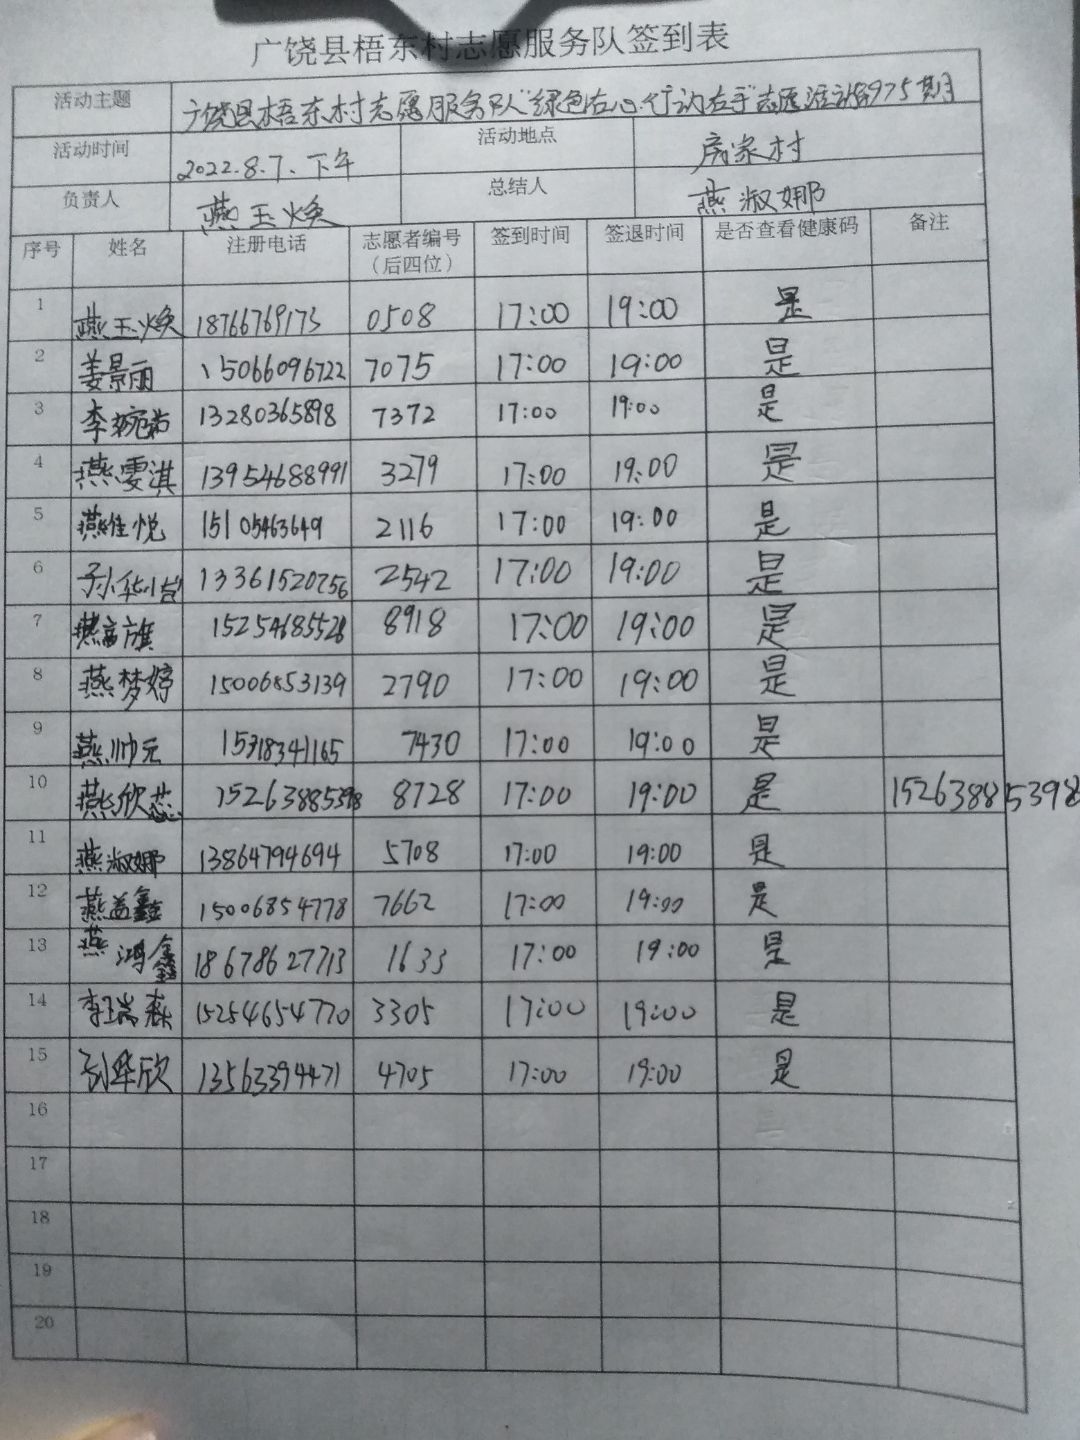 广饶县梧东村志愿服务队签到表
活动主题 广饶县梧东村志愿服务队"绿色在心·行动在手"志愿活动第975期
活动时间 2022.8.7.下午 活动地点 庞家村
负责人 燕玉焕 总结人 燕淑娜
序号 姓名 注册电话 志愿者编号（后四位） 签到时间 签退时间 是否查看健康码 备注
1 燕玉焕 18766769173 0508 17:00 19:00 是
2 姜景丽 15066096722 7075 17:00 19:00 是
3 李婉茹 13280365898 7372 17:00 19:00 是
4 燕雯淇 13954688991 3279 17:00 19:00 是
5 燕佳悦 15105463649 2116 17:00 19:00 是
6 13361520756 2542 17:00 19:00 是
7 燕富旗 15254685528 8918 17:00 19:00 是
8 燕梦婷 15006853139 2790 17:00 19:00 是
9 燕帅元 15318341165 7430 17:00 19:00 是
10 燕欣蕊 15263885398 8728 17:00 19:00 是 15263885398
11 燕淑娜 13864794694 5708 17:00 19:00 是
12 燕益鑫 15006854778 7662 17:00 19:00 是
13 燕鸿鑫 18678627713 1633 17:00 19:00 是
14 李瑞森 15254654770 3305 17:00 19:00 是
15 刘华欣 13563394471 4705 17:00 19:00 是
16
17
18
19
20